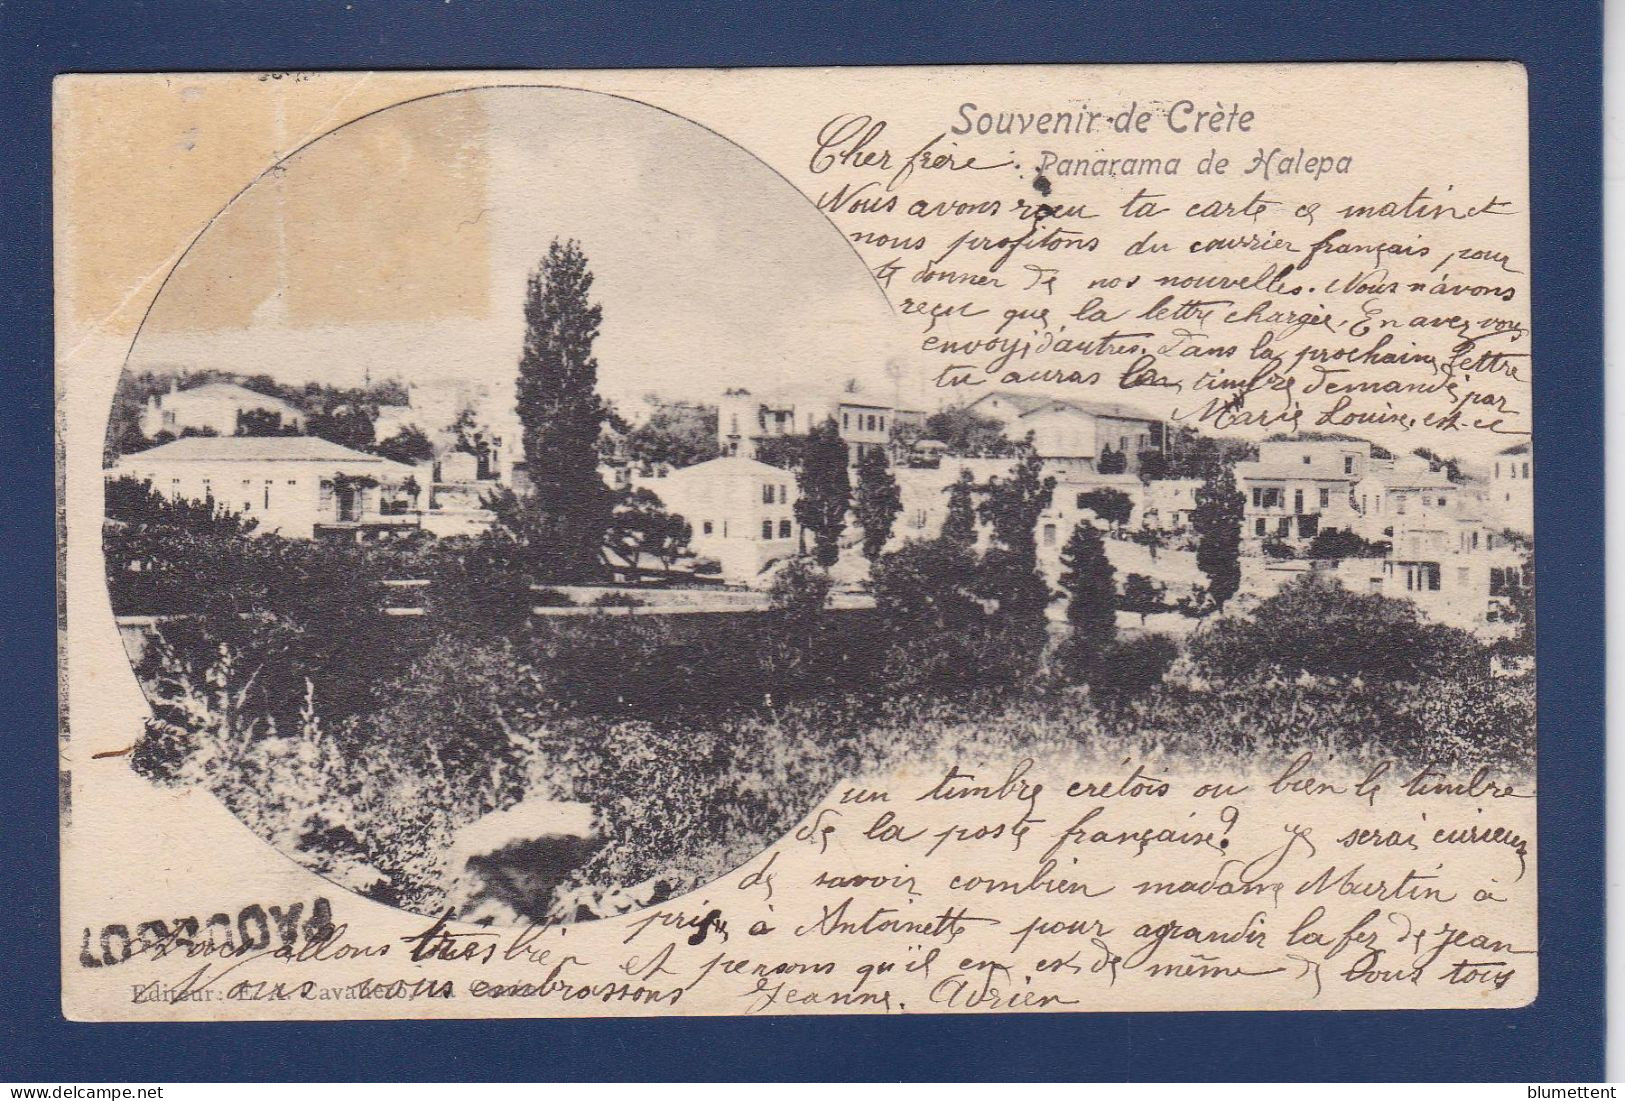 Souvenir de Crète
Panarama de Halepa
Cher frère.
Nous avons reçu ta carte ce matin et
nous profitons du courrier français pour
te donner de nos nouvelles. Nous n'avons
reçu que la lettre chargée. En avez vous
envoyé d'autres. Dans la prochaine lettre
tu auras le timbre demandé par
Marie Louise, est-ce
un timbre crétois ou bien le timbre
de la poste française? Je serai curieux
de savoir combien madame Martin à
pris à Antoinette pour agrandir la fez de Jean
Nous allons très bien et pensons qu'il en est de même de vous tous
Nous vous embrassons Jeanne. Adrien
Editeur: E. A. Cavaliero, La Canée
blumettent